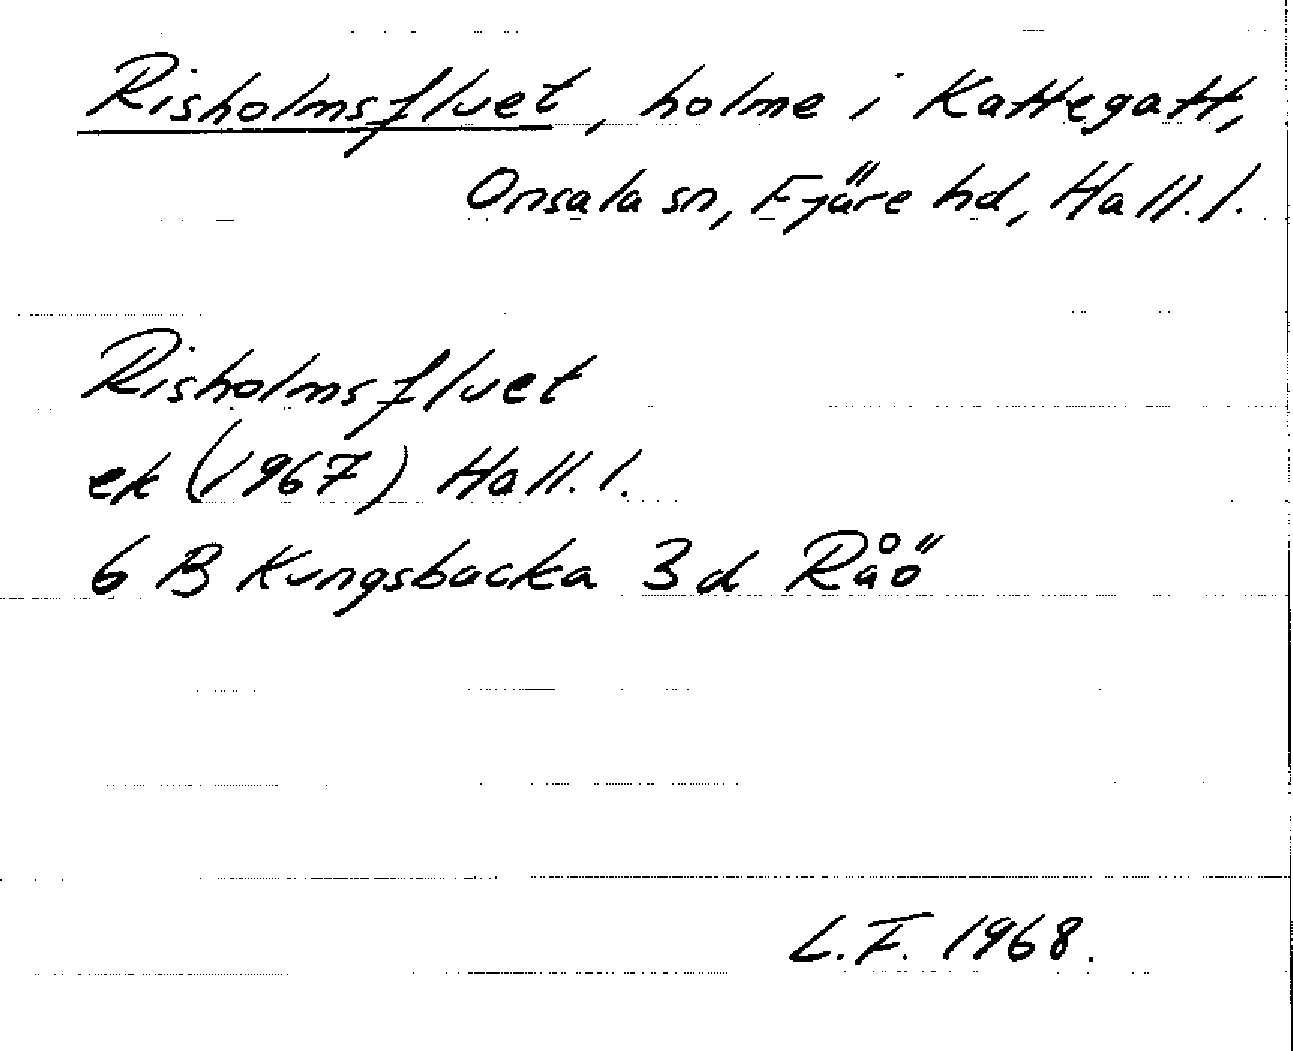 Risholmsfluet, holme i Kattegatt,
Onsala sn, Fjäre hd, Hall. l.
Risholmsfluet
ek (1967) Hall. l.
6 B Kungsbacka 3 d Råö
L.F. 1968.